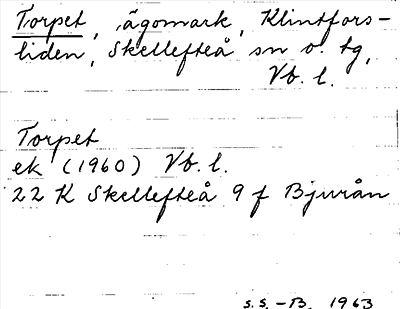 Torpet, ägomark, Klintfors-
liden, Skellefteå sn o. tg,
Vb. l.
Torpet
ek (1960) Vb. l.
22 K Skellefteå 9 f Bjurån
S.S.-B. 1963